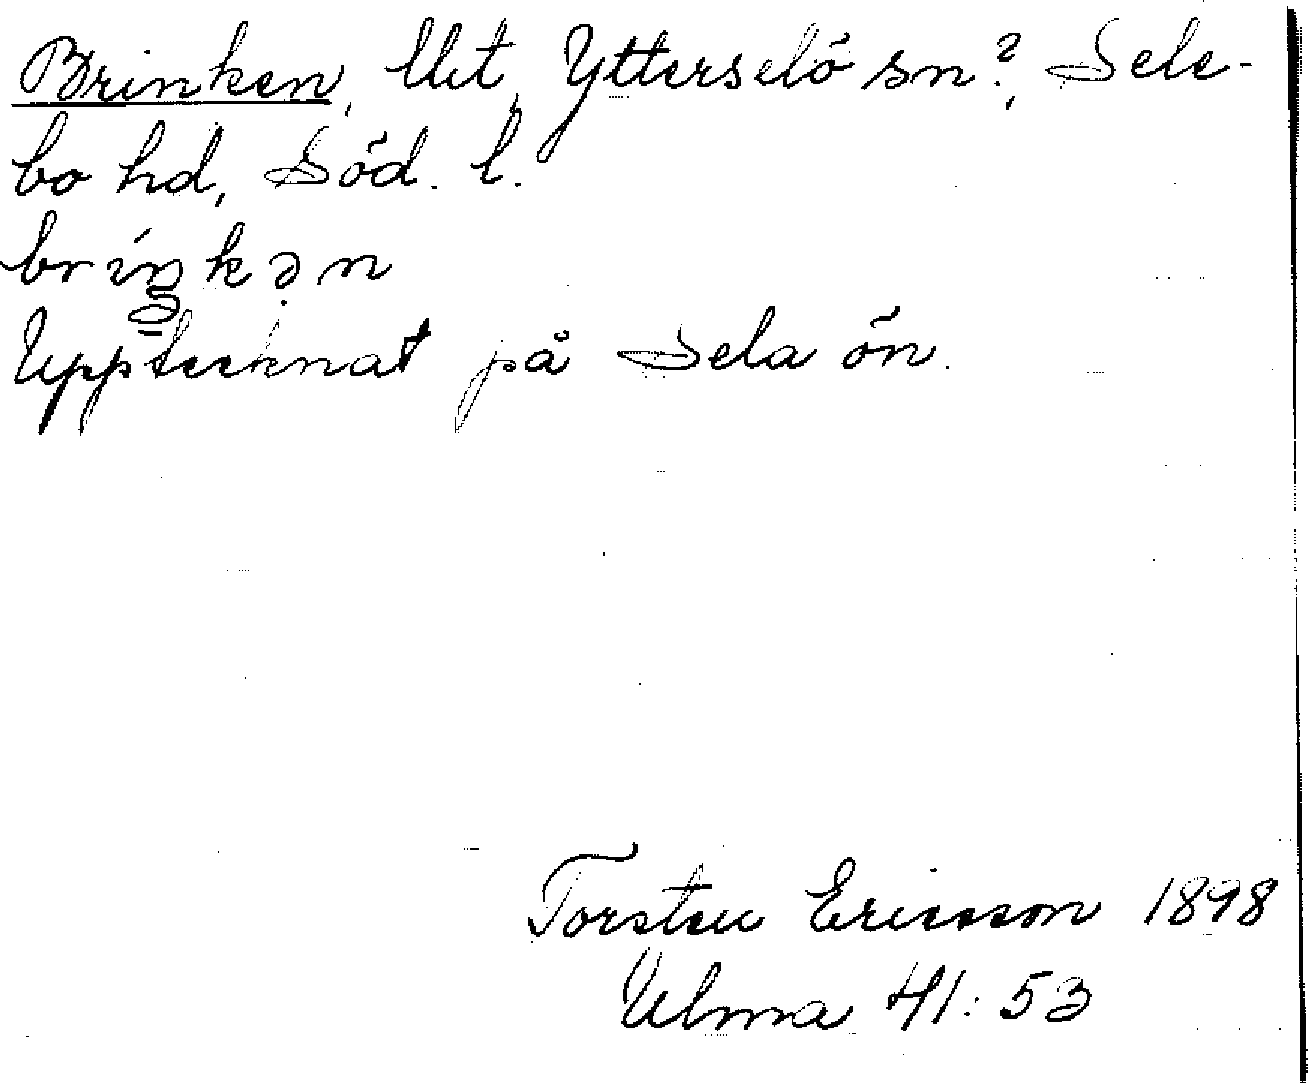 Brinken, Ytterselö sn?, Sele-
bo hd, Söd. l.
bríŋkən
Upptecknat på Sela ön.
Torsten Ericsson 1898
Ulma 41:53